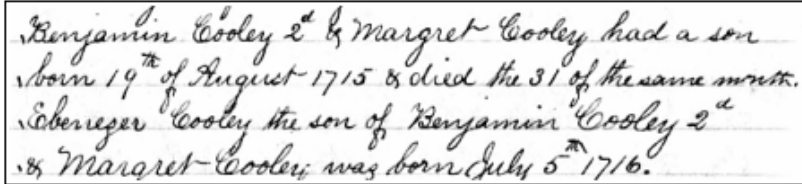 Benjamin Cooley 2d & Margret Cooley had a son
born 19th of August 1715 & died the 31 of the same month.
Ebeneger Cooley the son of Benjamin Cooley 2d
& Margret Cooley was born July 5th 1716.